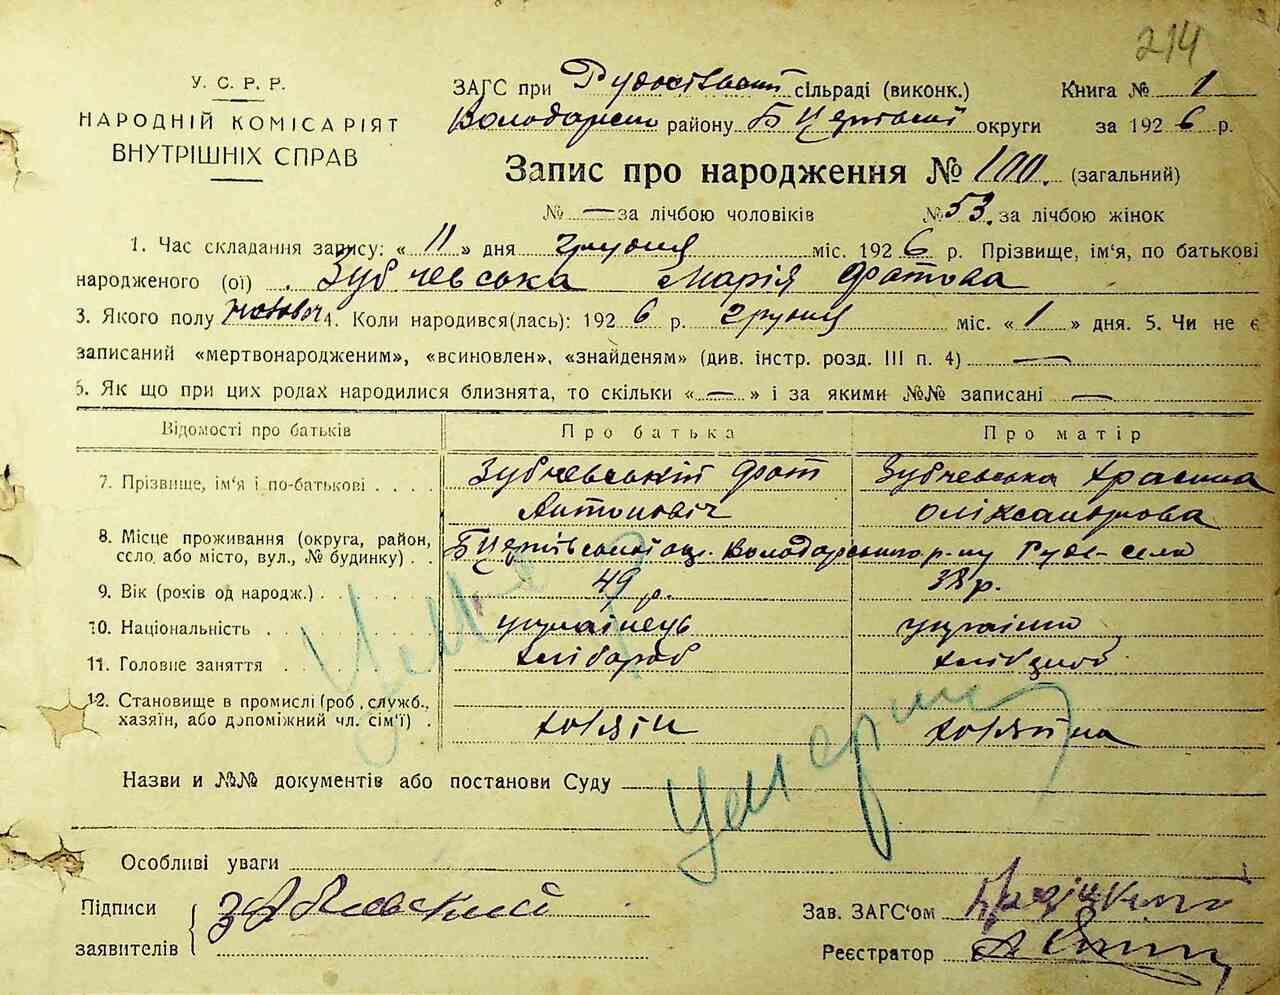 214
У. С. Р. Р.
НАРОДНІЙ КОМІСАРІЯТ
ВНУТРІШНІХ СПРАВ
ЗАГС при Рудосільській сільраді (виконк.) Книга № 1
Володарсько району Б Церківській округи за 1926 р.
Запис про народження № 100. (загальний)
№ — за лічбою чоловіків № 53. за лічбою жінок
1. Час складання запису: «11» дня грудня міс. 1926 р. Прізвище, ім'я, по батькові
народженого (ої) Зубчевська Марія Фотова
3. Якого полу жіноч 4. Коли народився(лась): 1926 р. грудня міс. «1» дня. 5. Чи не є
записаний «мертвонародженим», «всиновлен», «знайденям» (див. інстр. розд. III п. 4) —
6. Як що при цих родах народилися близнята, то скільки «—» і за якими №№ записані —
Відомості про батьків Про батька Про матір
7. Прізвище, ім'я і по-батькові Зубчевський Фот Зубчевська
Антонович Оліксандрова
8. Місце проживання (округа, район,
село або місто, вул., № будинку) Б Церківської ок. Володарського р-ну Руде-село
9. Вік (років од народж.) 49 р. 38 р.
10. Національність українець українка
11. Головне заняття хлібароб хлібороб
12. Становище в промислі (роб., службл.,
хазяїн, або допоміжний чл. сім'ї) хозяїн хозяїна
Назви и №№ документів або постанови Суду
Умерла
Особливі уваги
Підписи
заявителів
Зав. ЗАГС'ом
Реєстратор